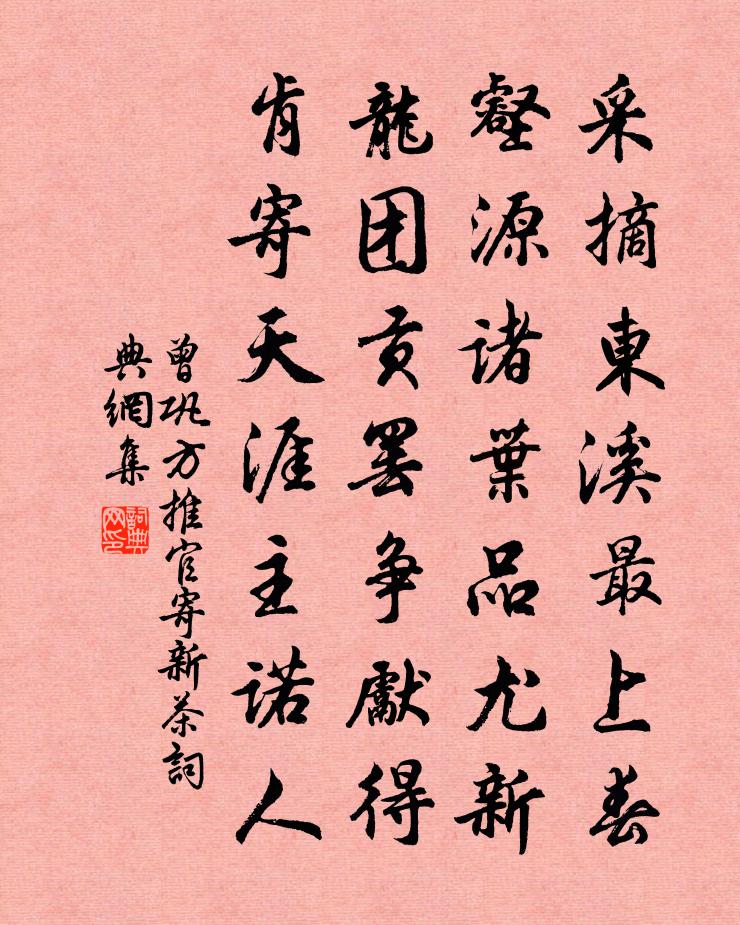 采摘東溪最上春
壑源诸葉品尤新
龍团贡罢争獻得
肯寄天涯主诺人
曾巩方推官寄新茶詞
典網集
詞典
网印